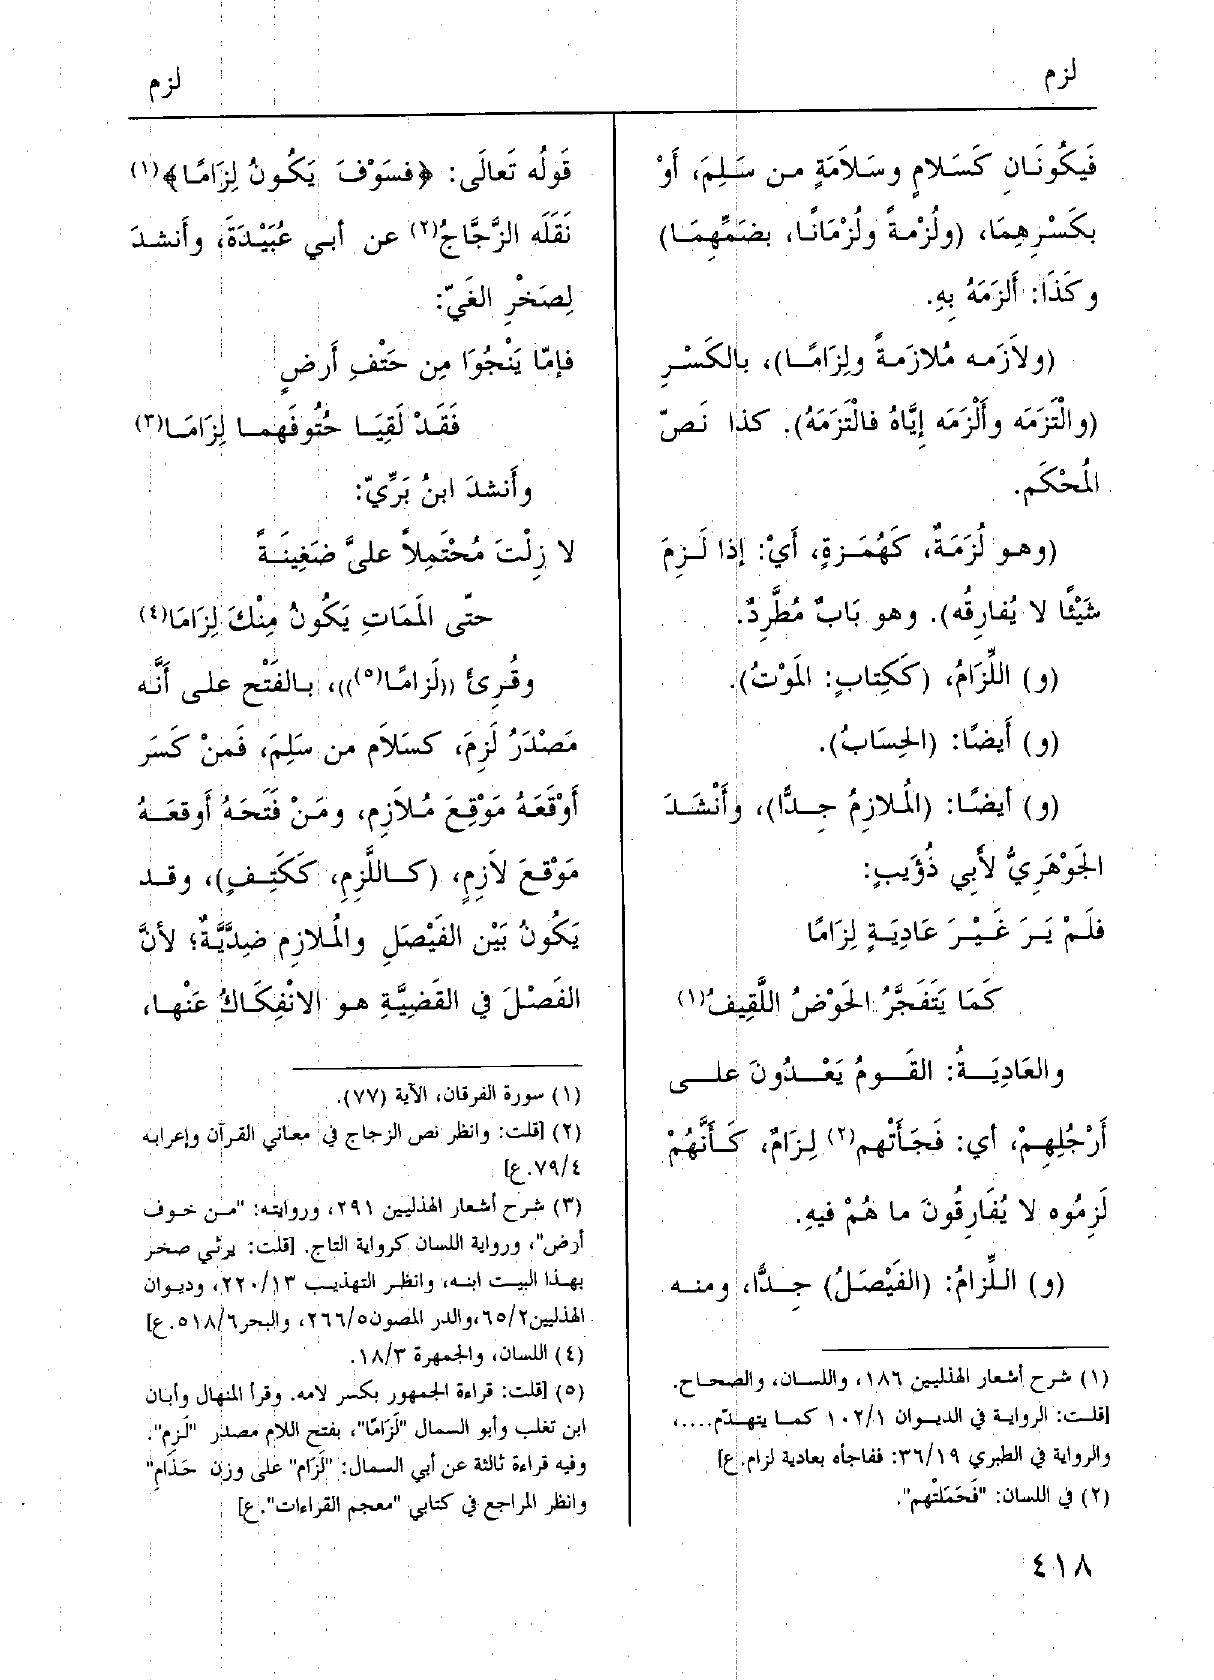 لزم
لزم
فَيَكُونَـانِ كَسَـلامٍ وسَـلاَمَةٍ مـن سَـلِمَ، أَوْ
بكَسْـرِهِمَا، (ولُزْمـةً ولُزْمَانًـا، بضَمِّهِمَـا)
وكَذَا: أَلزَمَهُ بِهِ.
(ولاَزمـه مُلازَمـةً ولِزَامًـا)، بـالكَسْـرِ
(والْتَزمَه وأَلْزَمَه إيَّاهُ فالْتَزَمَهُ). كذا نَـصّ
المُحْكَم.
(وهـو لُزَمَـةٌ، كَهُمَـزةٍ، أَيْ: إذا لَـزِمَ
شَيْئًا لا يُفارِقُه). وهو بَابٌ مُطَّرِدٌ.
(و) اللِّزَامُ، (ككِتابٍ: المَوْتُ).
(و) أَيضًا: (الحِسَابُ).
(و) أيضًـا: (المُلازِمُ جِـدًّا)، وأَنْشَـدَ
الجَوْهَرِيُّ لأَبِي ذُؤَيبٍ:
فلَـمْ يَـرَ غَـيْـرَ عَادِيَـةٍ لِزَامًا
كَمَا يَتَفَجَّرُ الحَوْضُ اللَّقِيفُ(١)
والعَادِيَـةُ: القَـومُ يَعْـدُونَ علـى
أَرْجُلِهِـمْ، أي: فَجَأَتْهم(٢) لِـزَامٌ، كَـأَنَّهُمْ
لَزِمُوه لا يُفَارِقُونَ ما هُمْ فيهِ.
(و) اللِّـزامُ: (الفَيْصَـلُ) جِـدًّا، ومنـه
(١) شرح أشعار الهذليين ١٨٦، واللسان، والصحاح.
[قلت: الرواية في الديوان ١٠٢/١ كما يتهدّم....،
والرواية في الطبري ٣٦/١٩: ففاجأه بعادية لزام.ع]
(٢) في اللسان: "فَحَمَلَتْهم".
قَولُه تَعالَى: ﴿فسَوْفَ يَكُـونُ لِزَامًـا﴾(١)
نَقَلَه الزَّجَّاجُ(٢) عن أبـي عُبَيْدَةَ، وأَنشـدَ
لِصَخْرِ الغَيّ:
فإمّا يَنْجُوَا مِن حَتْفِ أَرضٍ
فَقَـدْ لَقِيَـا حُتُوفَهمـا لِزَامَـا(٣)
وأَنشدَ ابنُ بَرِّيّ:
لا زِلْتَ مُحْتَمِلاً علىَّ ضَغِينَـةً
حتّى المَمَاتِ يَكُونُ مِنْكَ لِزَامَا(٤)
وقُـرِئ ((لَزامًا(٥)))، بـالفَتْح علـى أَنَّـه
مَصْدَرُ لَزِمَ، كسَلاَم من سَلِمَ، فَمنْ كَسَر
أَوْقَعَهُ مَوْقِعَ مُـلاَزِم، ومَـنْ فَتَحَهُ أَوقعَـهُ
مَوْقعَ لاَزِمٍ، (كـاللَّزِمِ، كَكَتِـفٍ)، وقـد
يَكُونُ بَيْن الفَيْصَلِ والمُـلازِم ضِدِّيَّـةٌ؛ لأنَّ
الفَصْلَ في القَضِيَّةِ هـو الانْفِكَاكُ عَنْهـا،
(١) سورة الفرقان، الآية (٧٧).
(٢) [قلت: وانظر نص الزجاج في معاني القرآن وإعرابه
٧٩/٤.ع]
(٣) شرح أشعار الهذليين ٢٩١، وروايته: "مـن خـوف
أرض"، ورواية اللسان كرواية التاج. [قلت: يرثي صخر
بهـذا البيـت ابنـه، وانظـر التهذيب ٢٢٠/١٣، وديـوان
الهذليين٦٥/٢،والدر المصون٢٦٦/٥، والبحر٥١٨/٦.ع]
(٤) اللسان، والجمهرة ١٨/٣.
(٥) [قلت: قراءة الجمهور بكسر لامه. وقرأ المنهال وأبان
ابن تغلب وأبو السمال "لَزَامًا"، بفتح اللام مصدر "لَزم".
وفيه قراءة ثالثة عن أبي السمال: "لَزَام" على وزن حَذَامِ"
وانظر المراجع في كتابي "معجم القراءات".ع]
٤١٨